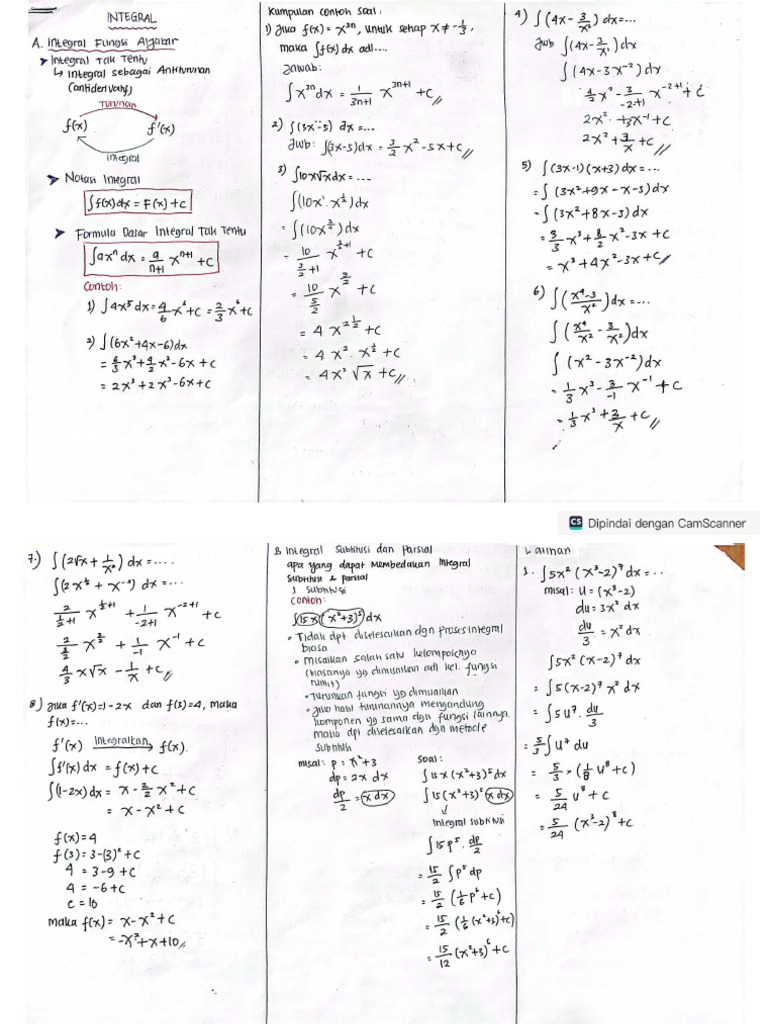 INTEGRAL
A. Integral Fungsi Aljabar
➤ Integral Tak Tentu
↳ Integral sebagai Antiturunan
(antiderivatif)
Turunan
f(x) f'(x)
Integral
➤ Notasi Integral
∫f(x)dx = F(x) + C
➤ Formula Dasar Integral Tak Tentu
∫axⁿ dx = a/(n+1) xⁿ⁺¹ + C
Contoh:
1) ∫4x⁵ dx = 4/6 x⁶ + C = 2/3 x⁶ + C
2) ∫(6x²+4x-6)dx
= 6/3 x³ + 4/2 x² - 6x + C
= 2x³ + 2x³ - 6x + C
Kumpulan Contoh Soal:
1) Jika f(x) = x³ⁿ, untuk setiap x ≠ -1/3,
maka ∫f(x) dx adl....
Jawab:
∫x³ⁿ dx = 1/(3n+1) x³ⁿ⁺¹ + C //
2) ∫(3x-5) dx = ...
Jwb: ∫(3x-5)dx = 3/2 x² - 5x + C //
3) ∫10x√x dx = ....
∫(10x¹ . x^(1/2)) dx
= ∫(10x^(3/2)) dx
= 10/(3/2+1) x^(3/2+1) + C
= 10/(5/2) x^(5/2) + C
= 4 x^(2 1/2) + C
= 4 x² . x^(1/2) + C
= 4x² √x + C //
4) ∫(4x - 3/x²) dx = ...
Jwb ∫(4x - 3/x²) dx
∫(4x - 3x⁻²) dx
4/2 x² - 3/(-2+1) x⁻²⁺¹ + C
2x² + 3x⁻¹ + C
2x² + 3/x + C //
5) ∫(3x-1)(x+3) dx = ...
= ∫(3x²+9x-x-3)dx
= ∫(3x²+8x-3)dx
= 3/3 x³ + 8/2 x² - 3x + C
= x³ + 4x² - 3x + C //
6) ∫((x⁴-3)/x²) dx = ...
∫(x⁴/x² - 3/x²) dx
∫(x² - 3x⁻²) dx
= 1/3 x³ - 3/-1 x⁻¹ + C
= 1/3 x³ + 3/x + C //
CS Dipindai dengan CamScanner
7.) ∫(2√x + 1/x²) dx = ....
∫(2x^(1/2) + x⁻²) dx = ....
2/(1/2+1) x^(1/2+1) + 1/(-2+1) x⁻²⁺¹ + C
2/(3/2) x^(3/2) + 1/-1 x⁻¹ + C
4/3 x√x - 1/x + C //
8) Jika f'(x) = 1-2x dan f(3) = 4, maka
f(x) = ...
f'(x) Integralkan → f(x)
∫f'(x) dx = f(x) + C
∫(1-2x) dx = x - 2/2 x² + C
= x - x² + C
f(x) = 4
f(3) = 3-(3)² + C
4 = 3-9+C
4 = -6+C
C = 10
maka f(x) = x-x²+C
= -x²+x+10 //
B. Integral Subtitusi dan Parsial
apa yang dapat Membedakan Integral
Subtitusi & parsial
1 Subtitusi
Contoh:
∫15x (x²+3)⁵ dx
• Tidak dpt diselesaikan dgn proses integral
biasa
• Misalkan salah satu kelompoknya
(biasanya yg dimisalkan adl kel. fungsi
rumit)
• Turunkan fungsi yg dimisalkan
• Jika hasil turunannya mengandung
komponen yg sama dgn fungsi lainnya.
maka dpt diselesaikan dgn metode
Subtitusi
misal: p = x²+3
dp = 2x dx
dp/2 = x dx
Soal:
∫15x (x²+3)⁵ dx
∫15 (x²+3)⁵ x dx
↓
Integral Subtitusi
∫15p⁵ . dp/2
= 15/2 ∫p⁵ dp
= 15/2 (1/6 p⁶ + C)
= 15/2 (1/6 (x²+3)⁶ + C)
= 15/12 (x²+3)⁶ + C
Latihan
1. ∫5x² (x³-2)⁷ dx = ...
misal: U = (x³-2)
du = 3x² dx
du/3 = x² dx
∫5x² (x-2)⁷ dx
= ∫5(x-2)⁷ x² dx
= ∫5U⁷ . du/3
= 5/3 ∫U⁷ du
= 5/3 × (1/8 U⁸ + C)
= 5/24 U⁸ + C
= 5/24 (x³-2)⁸ + C